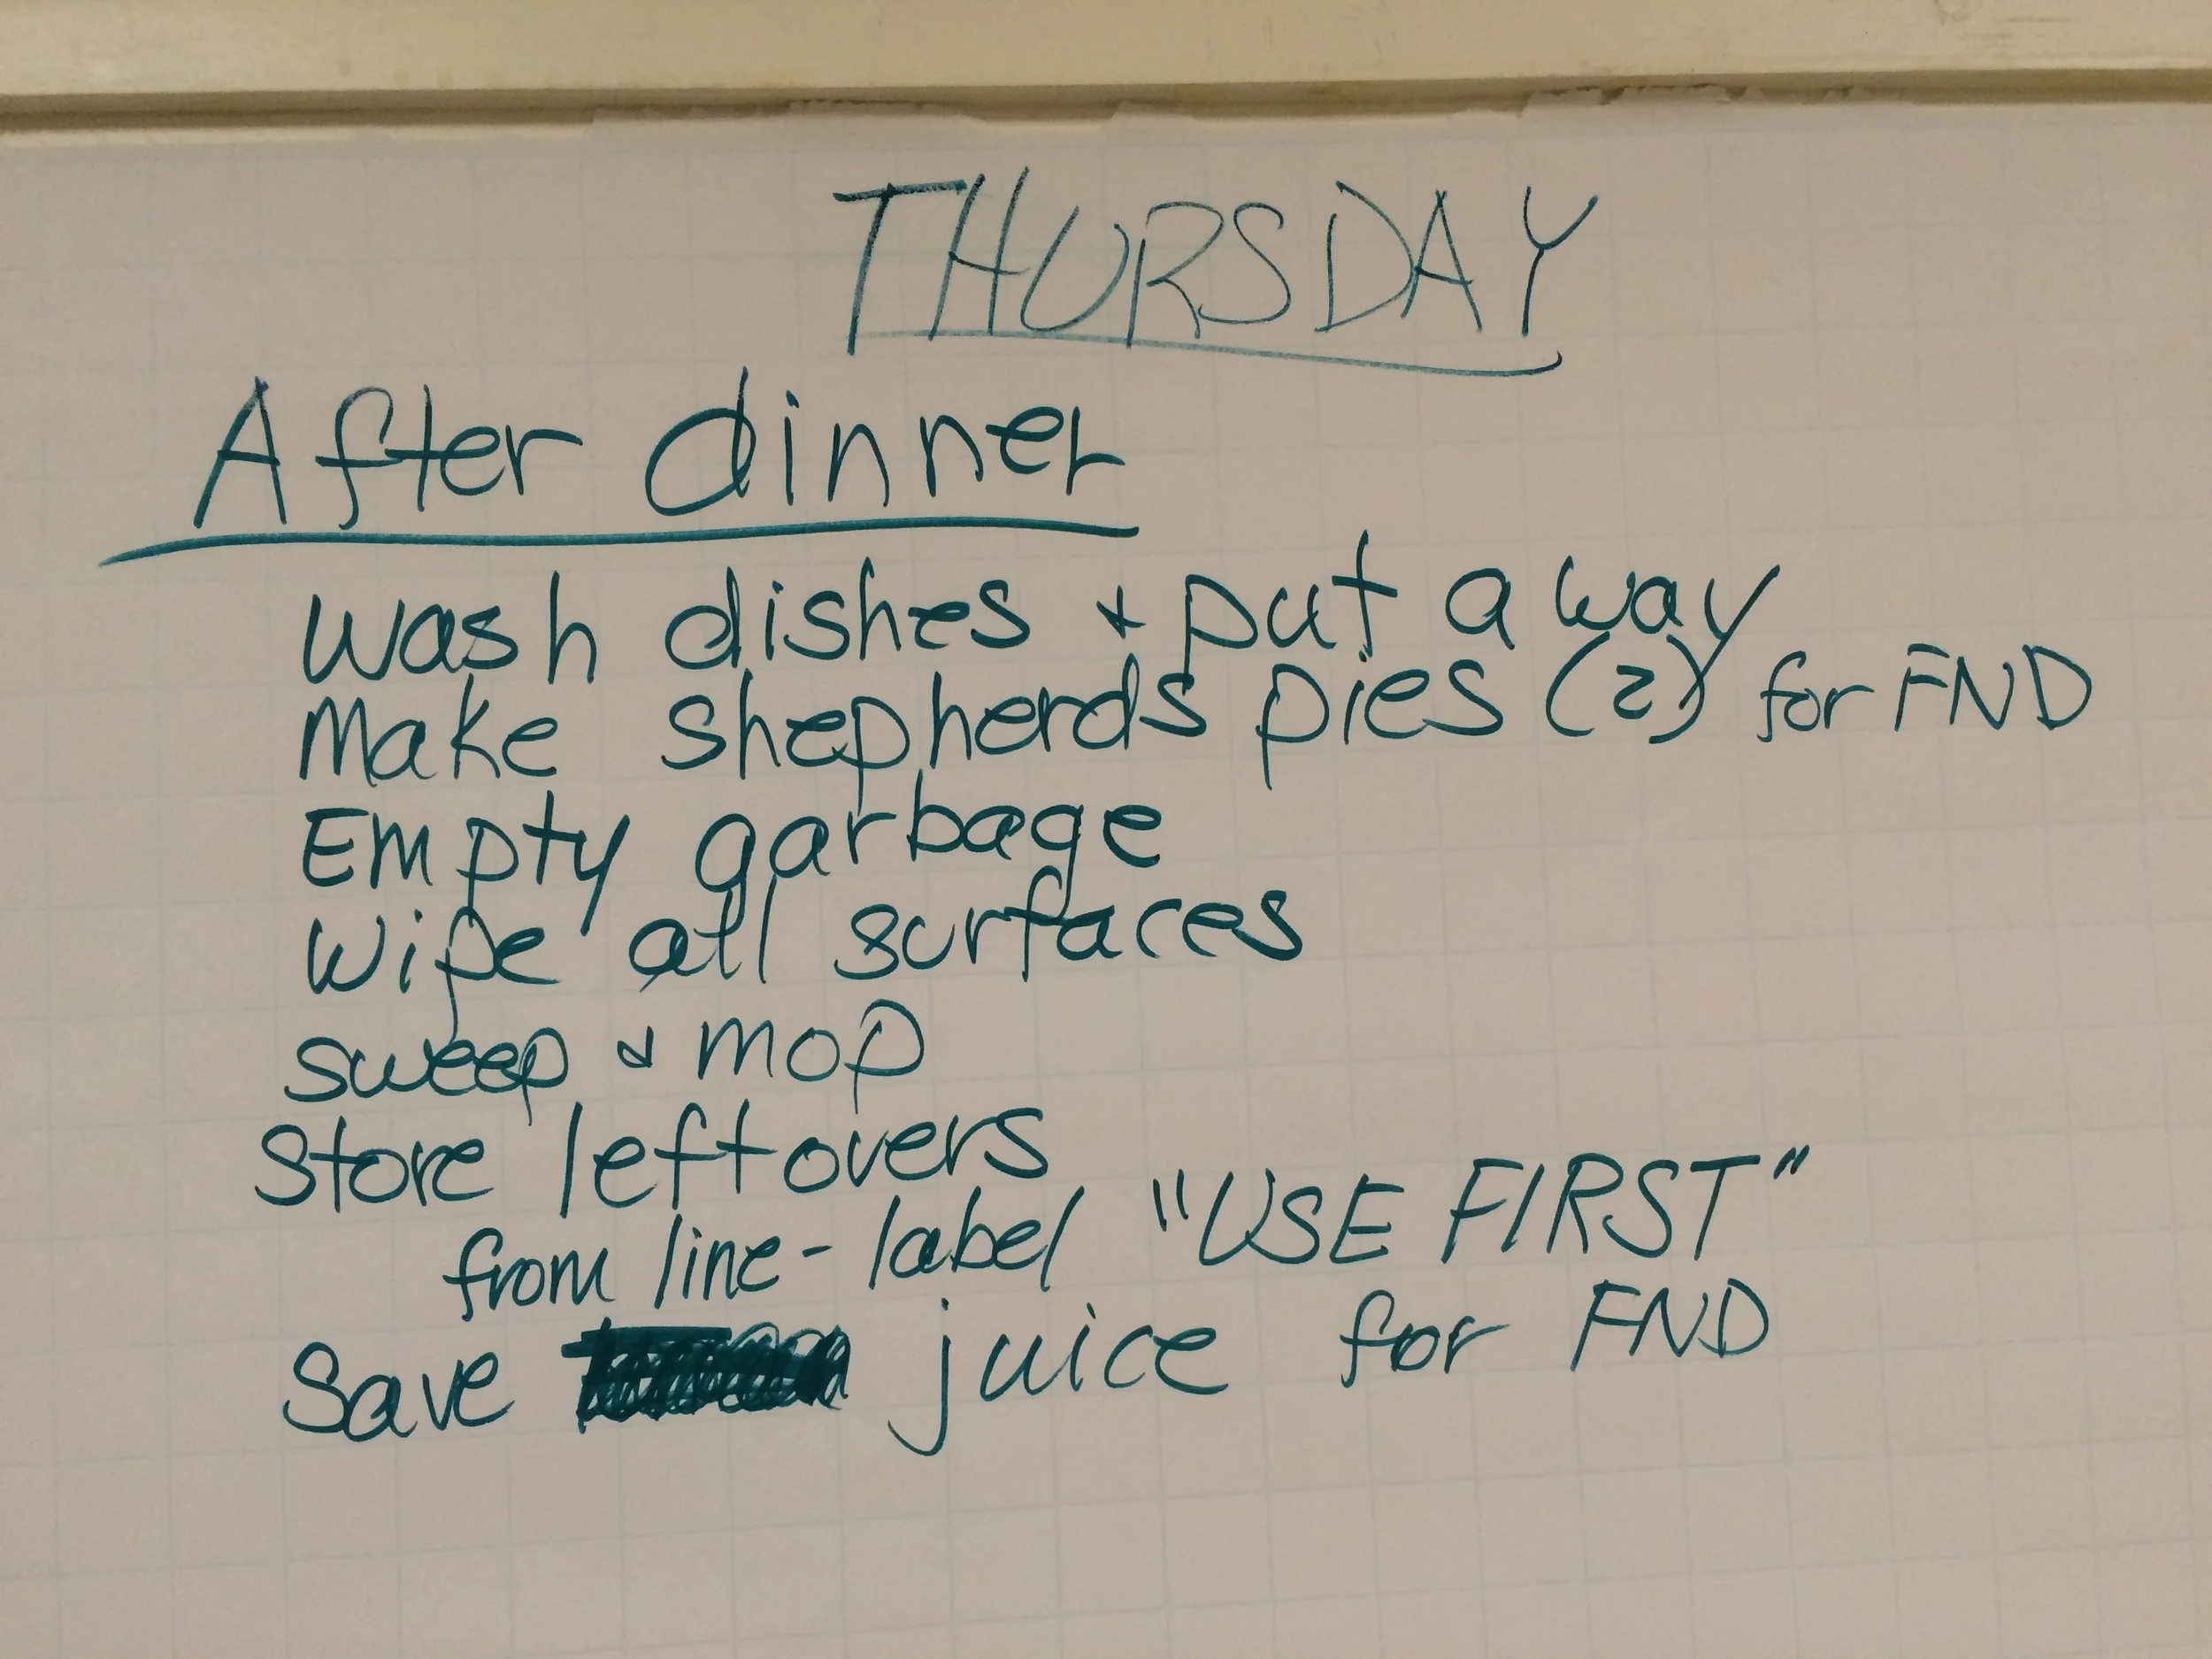 THURSDAY
After dinner
Wash dishes + put away
Make shepherds pies (2) for FND
Empty garbage
Wipe all surfaces
sweep & mop
Store leftovers
from line - label "USE FIRST"
Save juice for FND